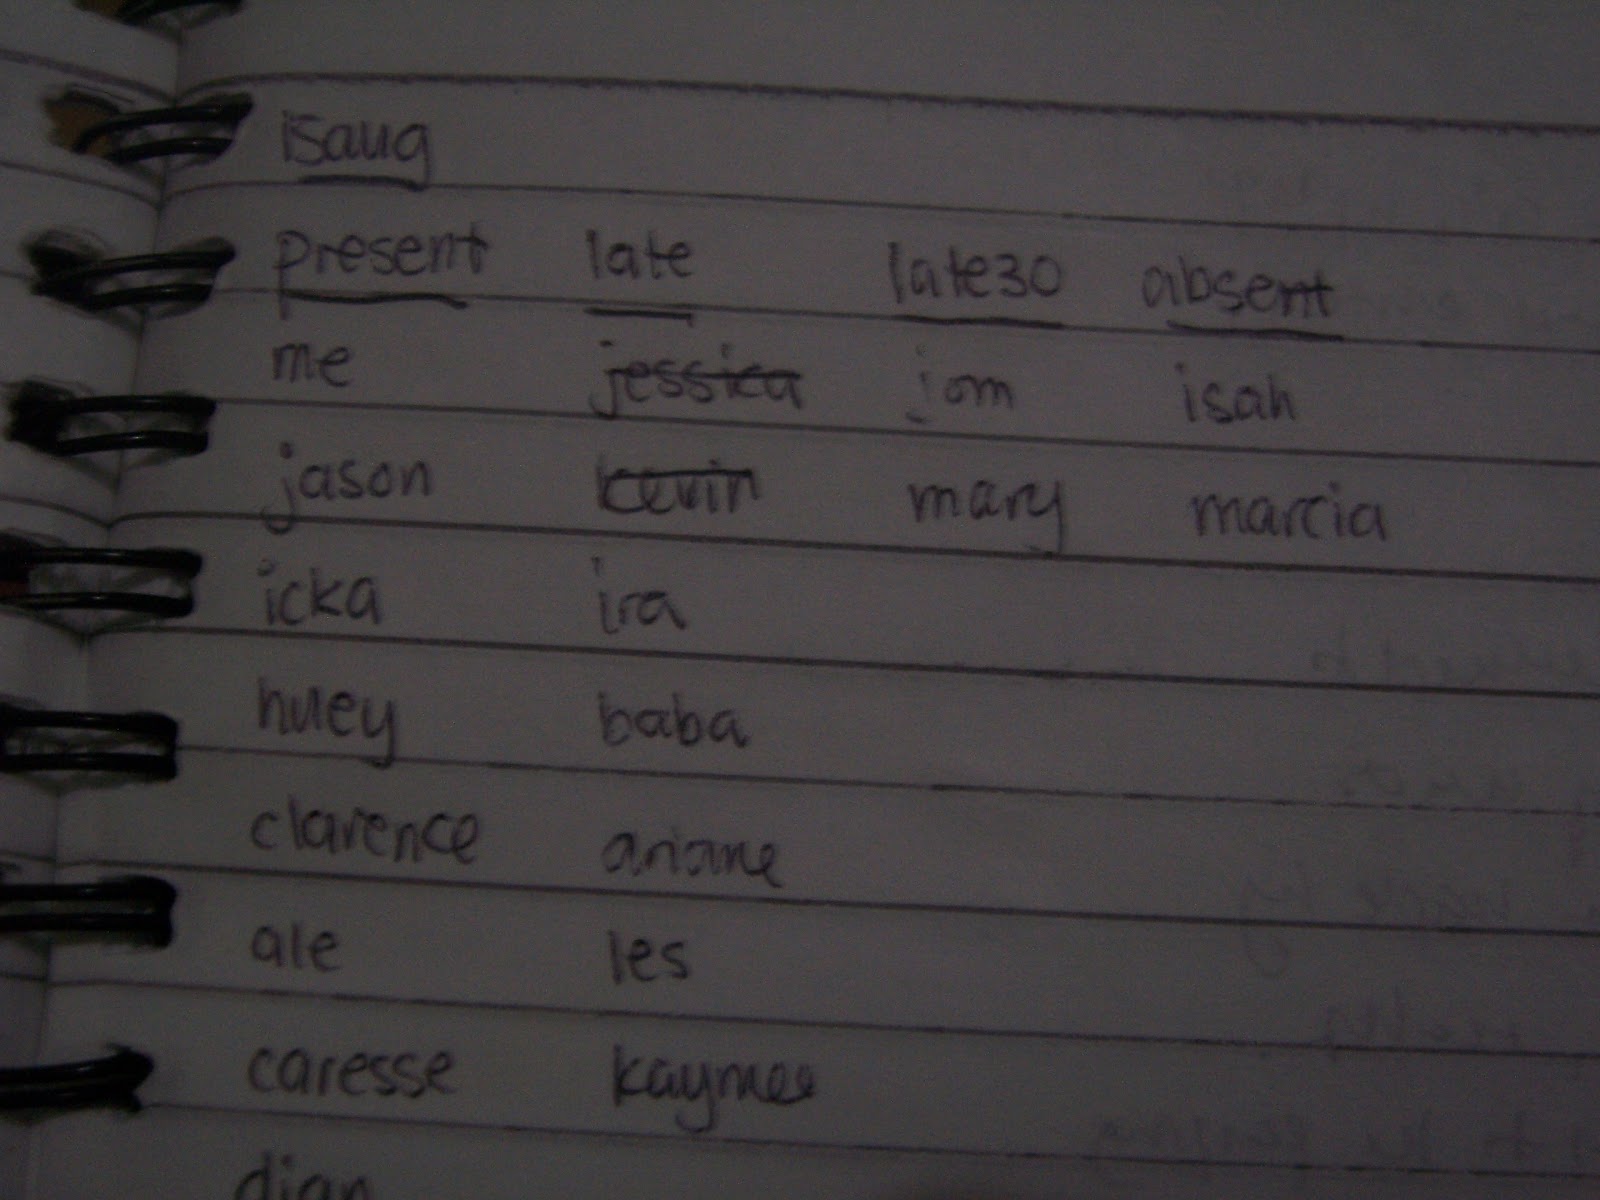 15aug
present late late30 absent
me jessica jom isah
jason kevin mary marcia
icka ira
huey baba
clarence ariane
ale les
caresse kaymee
dian